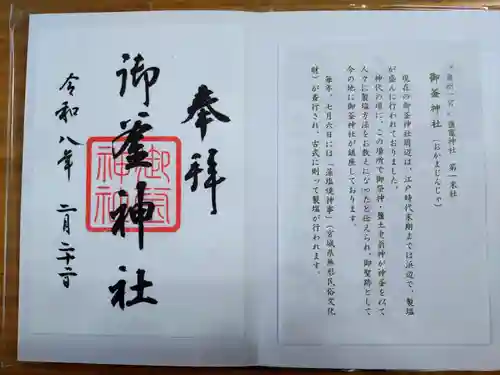 奥州一宮 鹽竈神社 第一末社
御釜神社（おかまじんじゃ）
現在の御釜神社周辺は、江戸時代末期までは浜辺で、製塩
が盛んに行われておりました。
神代の頃に、この場所で御祭神・鹽土老翁神が神釜を以て
人々に製塩方法をお教えになったと伝えられ、御聖跡として
今の地に御釜神社が鎮座しております。
毎年、七月六日には「藻塩焼神事」（宮城県無形民俗文化
財）が斎行され、古式に則って製塩が行われます。
奉拝
御釜神社
御釜
神社
令和八年 二月二十